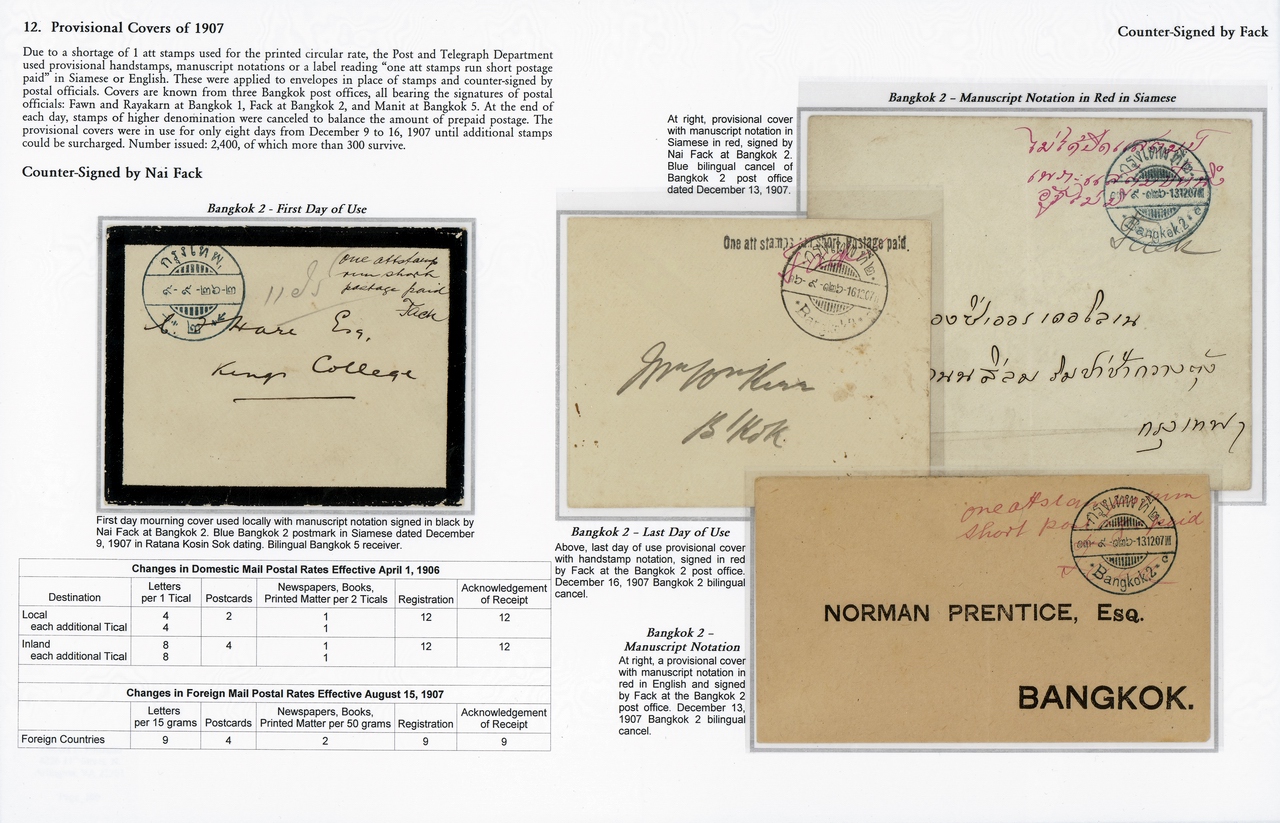 12. Provisional Covers of 1907
Counter-Signed by Fack
Due to a shortage of 1 att stamps used for the printed circular rate, the Post and Telegraph Department
used provisional handstamps, manuscript notations or a label reading “one att stamps run short postage
paid” in Siamese or English. These were applied to envelopes in place of stamps and counter-signed by
postal officials. Covers are known from three Bangkok post offices, all bearing the signatures of postal
officials: Fawn and Rayakarn at Bangkok 1, Fack at Bangkok 2, and Manit at Bangkok 5. At the end of
each day, stamps of higher denomination were canceled to balance the amount of prepaid postage. The
provisional covers were in use for only eight days from December 9 to 16, 1907 until additional stamps
could be surcharged. Number issued: 2,400, of which more than 300 survive.
Counter-Signed by Nai Fack
Bangkok 2 - First Day of Use
กรุงเทพ
one att stamp
run short
postage paid
Fack
Hare Esq,
Kings College
First day mourning cover used locally with manuscript notation signed in black by
Nai Fack at Bangkok 2. Blue Bangkok 2 postmark in Siamese dated December
9, 1907 in Ratana Kosin Sok dating. Bilingual Bangkok 5 receiver.
Changes in Domestic Mail Postal Rates Effective April 1, 1906
Destination
Letters
per 1 Tical
Postcards
Newspapers, Books,
Printed Matter per 2 Ticals
Registration
Acknowledgement
of Receipt
Local 4 2 1 12 12
each additional Tical 4 1
Inland 8 4 1 12 12
each additional Tical 8 1
Changes in Foreign Mail Postal Rates Effective August 15, 1907
Letters
per 15 grams
Postcards
Newspapers, Books,
Printed Matter per 50 grams
Registration
Acknowledgement
of Receipt
Foreign Countries 9 4 2 9 9
At right, provisional cover
with manuscript notation in
Siamese in red, signed by
Nai Fack at Bangkok 2.
Blue bilingual cancel of
Bangkok 2 post office
dated December 13, 1907.
Bangkok 2 – Manuscript Notation in Red in Siamese
กรุงเทพฯ
-13.12.07
Bangkok.2
Fack
กรุงเทพฯ
One att stamps run short postage paid.
-16.12.07
Bangkok.2
B'Kok.
Bangkok 2 - Last Day of Use
Above, last day of use provisional cover
with handstamp notation, signed in red
by Fack at the Bangkok 2 post office.
December 16, 1907 Bangkok 2 bilingual
cancel.
Bangkok 2 –
Manuscript Notation
At right, a provisional cover
with manuscript notation in
red in English and signed
by Fack at the Bangkok 2
post office. December 13,
1907 Bangkok 2 bilingual
cancel.
one att stamp run
short postage paid
-13.12.07
Bangkok.2
NORMAN PRENTICE, ESQ.
BANGKOK.